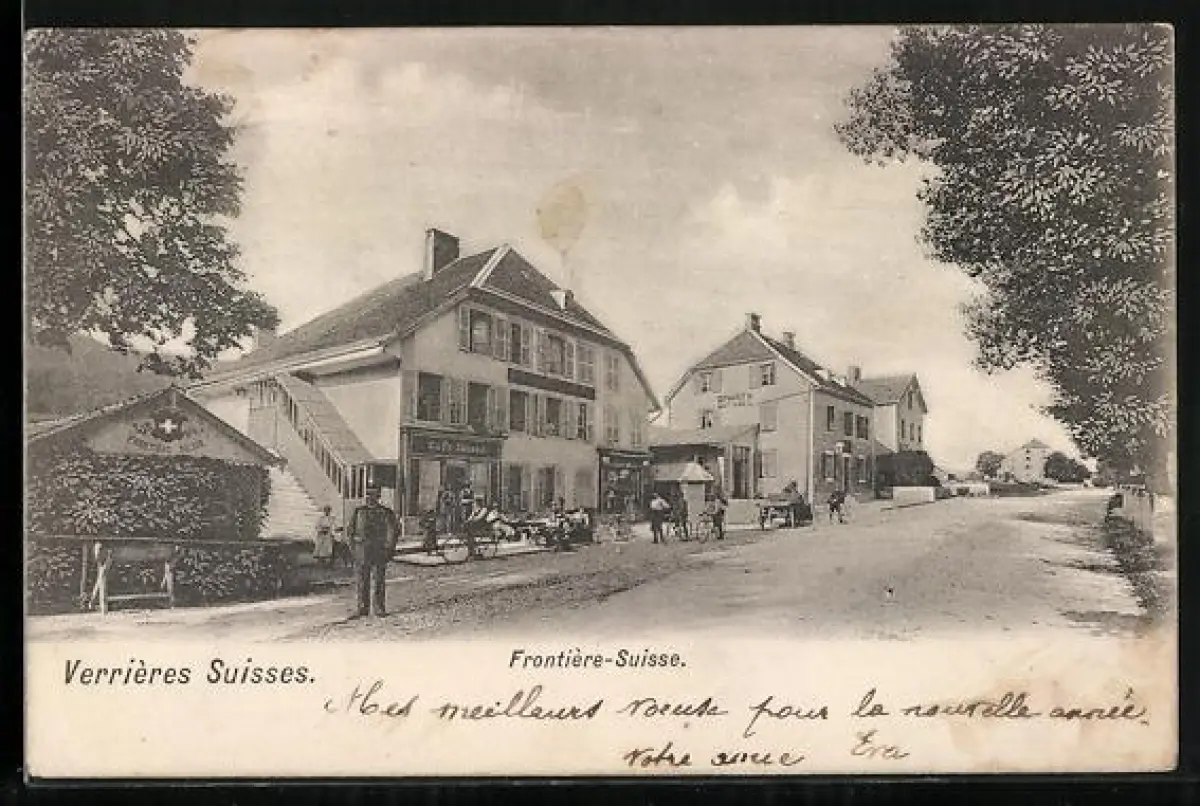 CAFÉ SUISSE
Verrières Suisses.
Frontière-Suisse.
Mes meilleurs voeux pour la nouvelle année.
Votre amie Eva